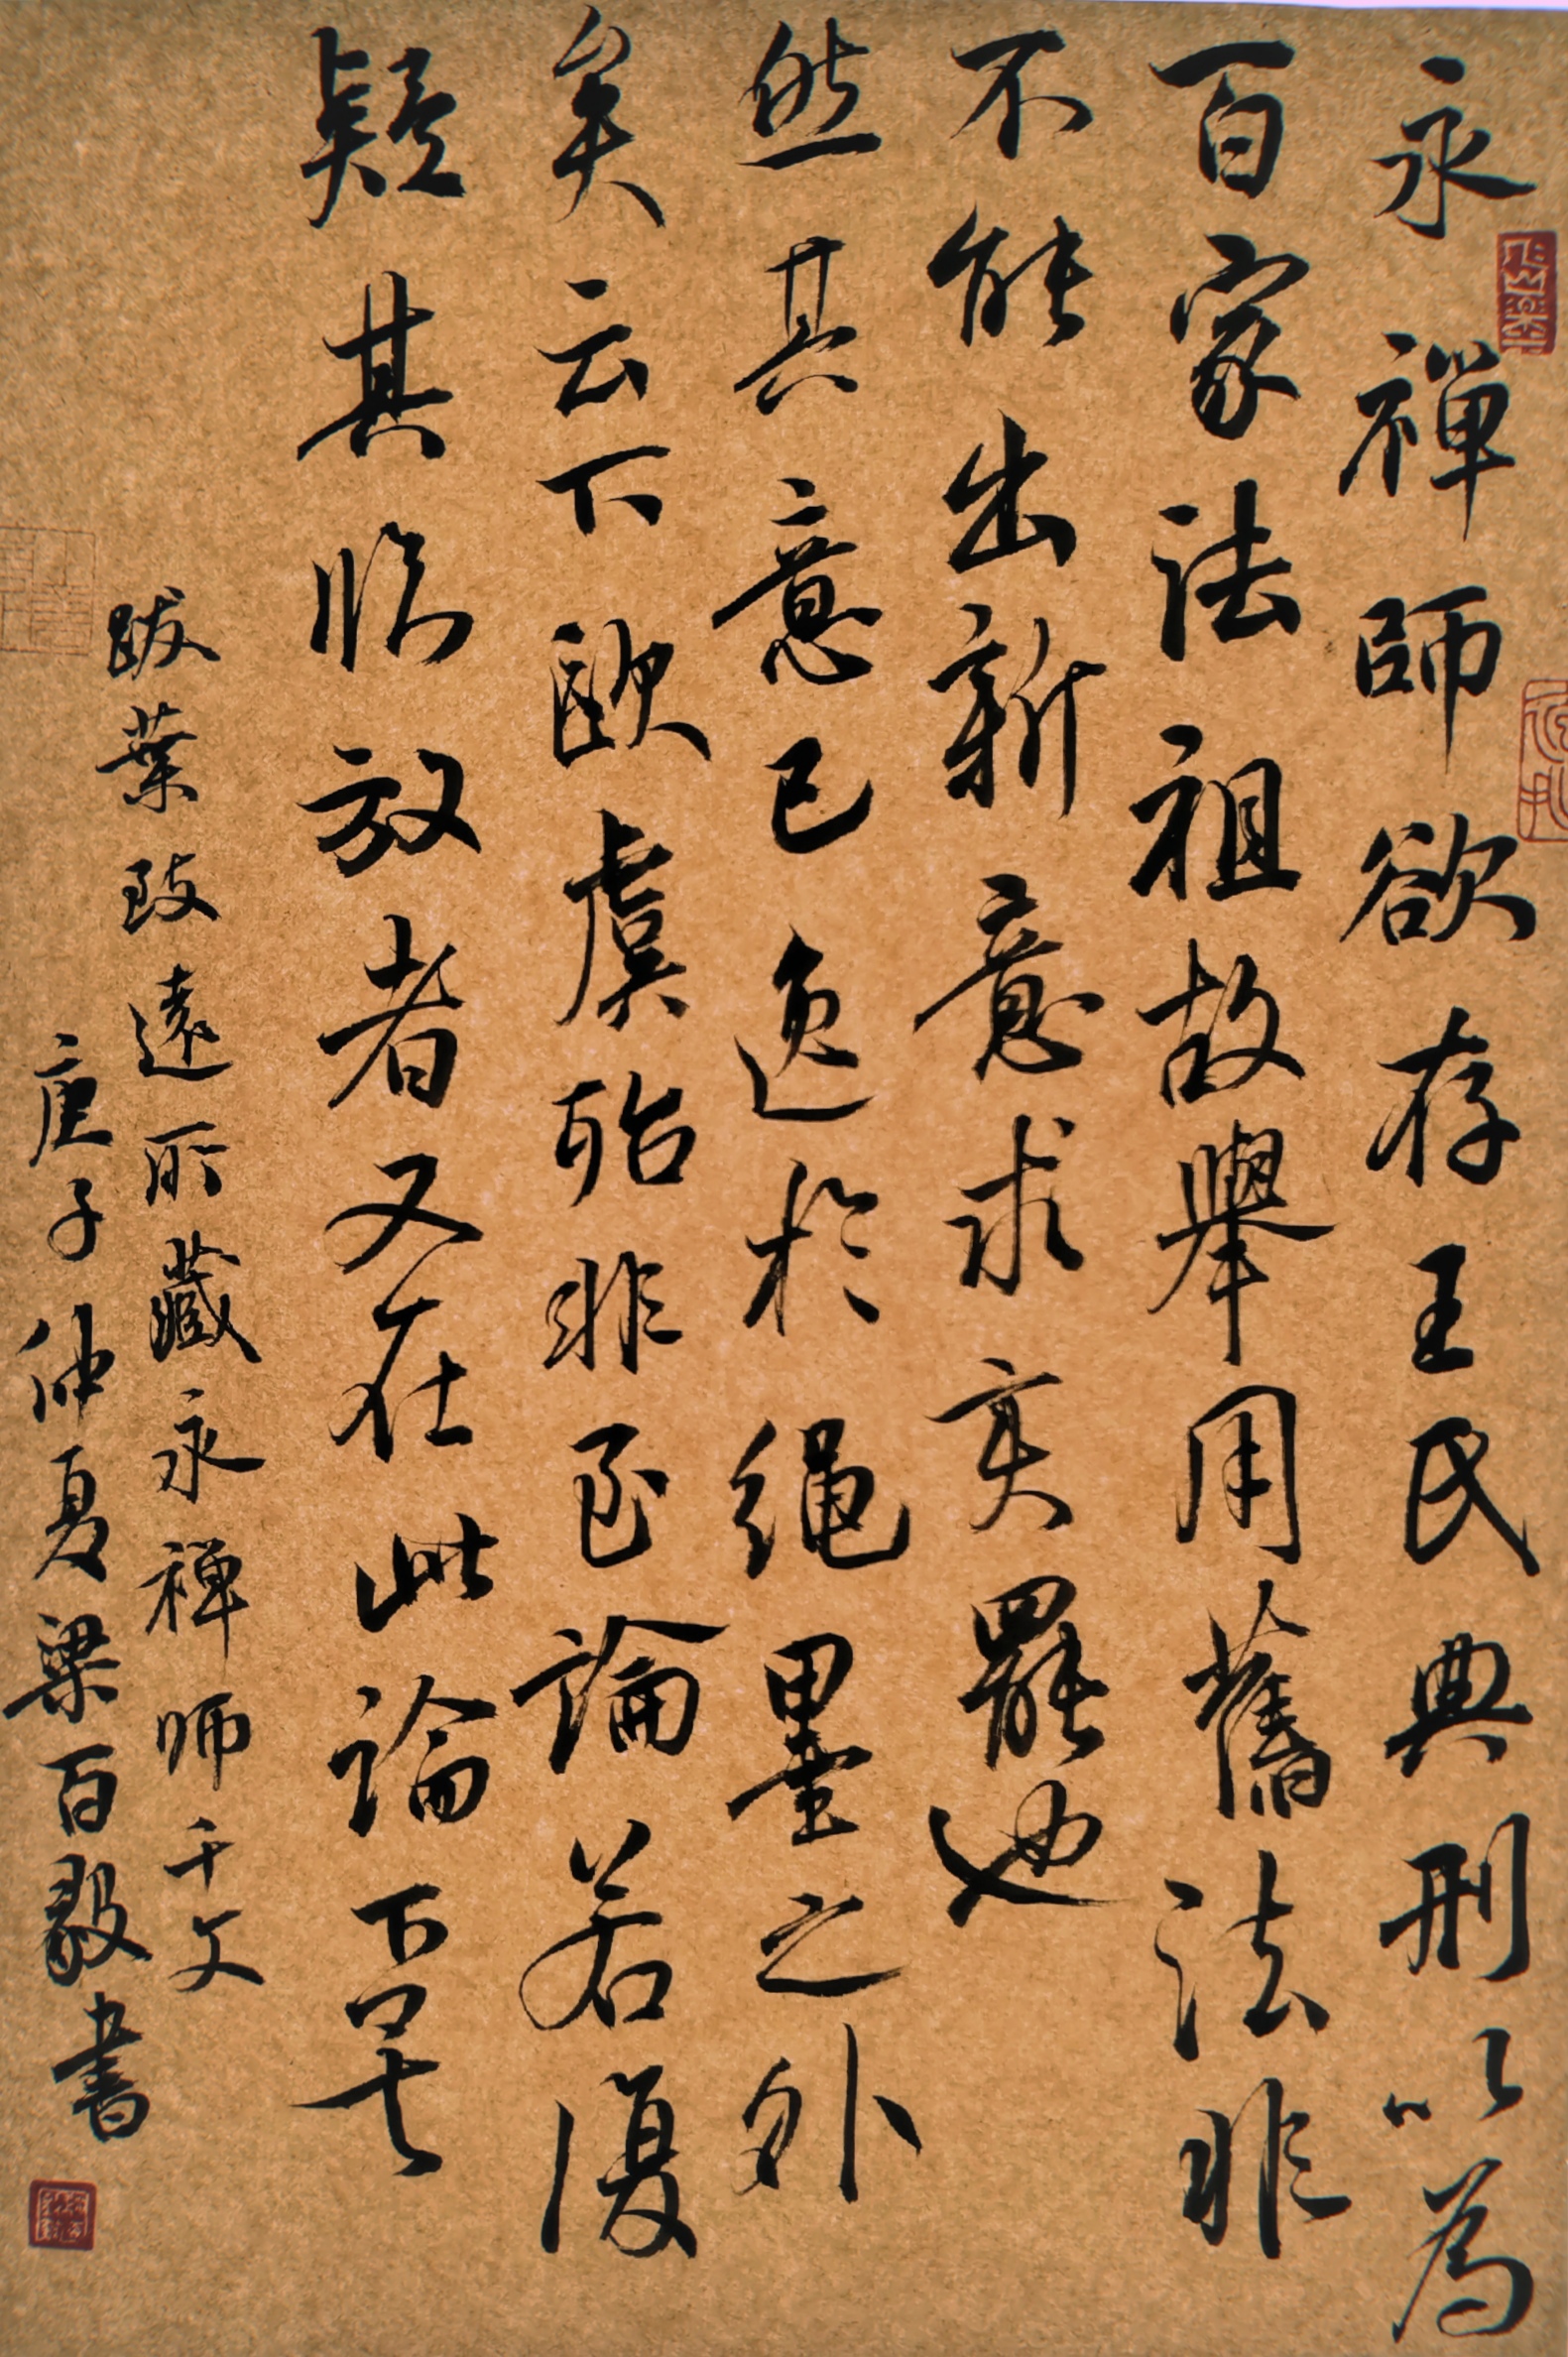 永禪師欲存王氏典刑以為
百家法祖故舉用舊法非
不能出新意求变罷也
然其意已逸於繩墨之外
矣云下歐虞殆非至論若復
疑其臨放者又在此論下矣
跋葉致遠所藏永禪師千文
庚子仲夏梁百毅書